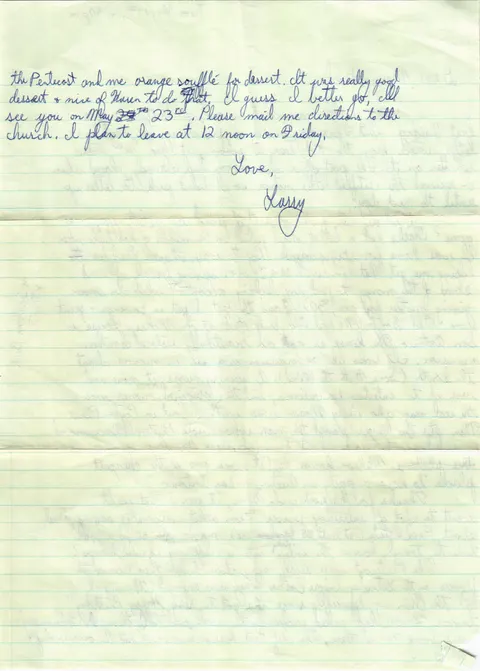 the Pentecost and me orange soufflé for dessert. It was really good
dessert & nice of them to do that. I guess I better go, I'll
see you on May 23rd. Please mail me directions to the
church. I plan to leave at 12 noon on Friday.
Love,
Larry